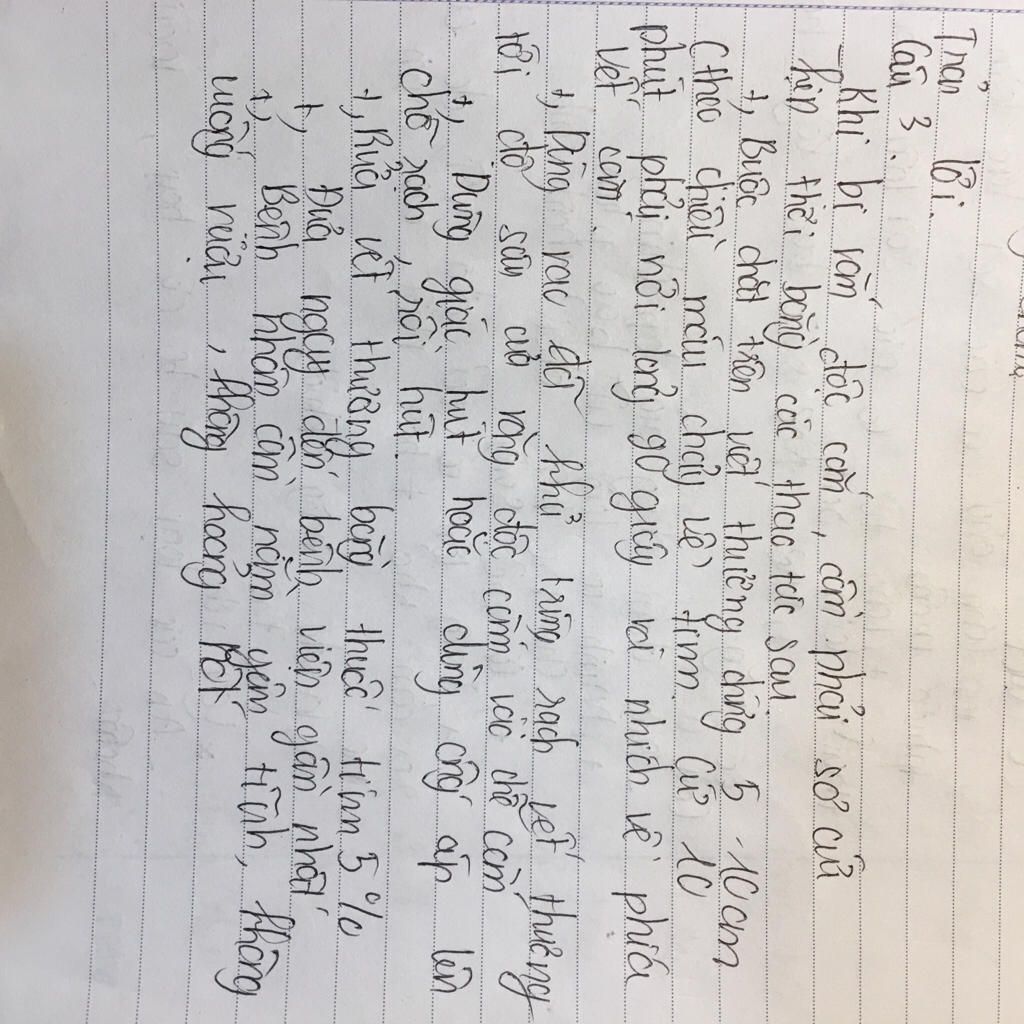 Trả lời.
Câu 3.
- Khi bị rắn độc cắn, cần phải sơ cứu
kịp thời bằng các thao tác sau
+, Buộc chặt trên vết thương chừng 5 - 10cm
(theo chiều máu chảy về tim cứ 10
phút phải nới lỏng 90 giây và nhích về phía
vết cắn.
+, Dùng rao đã khử trùng rạch vết thương
tới độ sâu của răng độc cắm vào chỗ cắn
+, Dùng giác hút hoặc dùng ống úp lên
chỗ rạch, rồi hút.
+, Rửa vết thương bằng thuốc tím 5%
+, Đưa ngay đến bệnh viện gần nhất
+, Bệnh nhân cần nằm yên tĩnh, không
uống rượu, không hoảng hốt